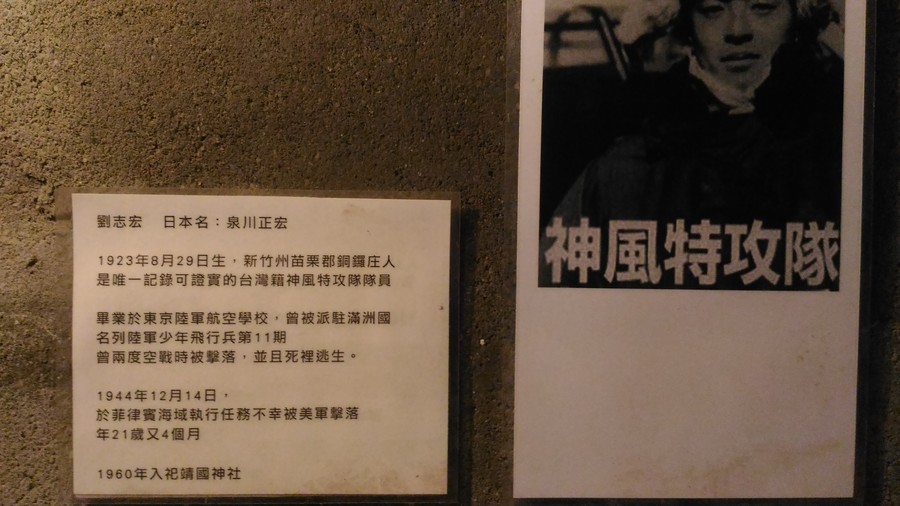 劉志宏　日本名：泉川正宏
1923年8月29日生，新竹州苗栗郡銅鑼庄人
是唯一記錄可證實的台灣籍神風特攻隊隊員
畢業於東京陸軍航空學校，曾被派駐滿洲國
名列陸軍少年飛行兵第11期
曾兩度空戰時被擊落，並且死裡逃生。
1944年12月14日，
於菲律賓海域執行任務不幸被美軍擊落
年21歲又4個月
1960年入祀靖國神社
神風特攻隊